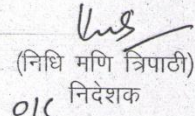 (निधि मणि त्रिपाठी)
निदेशक
O/C